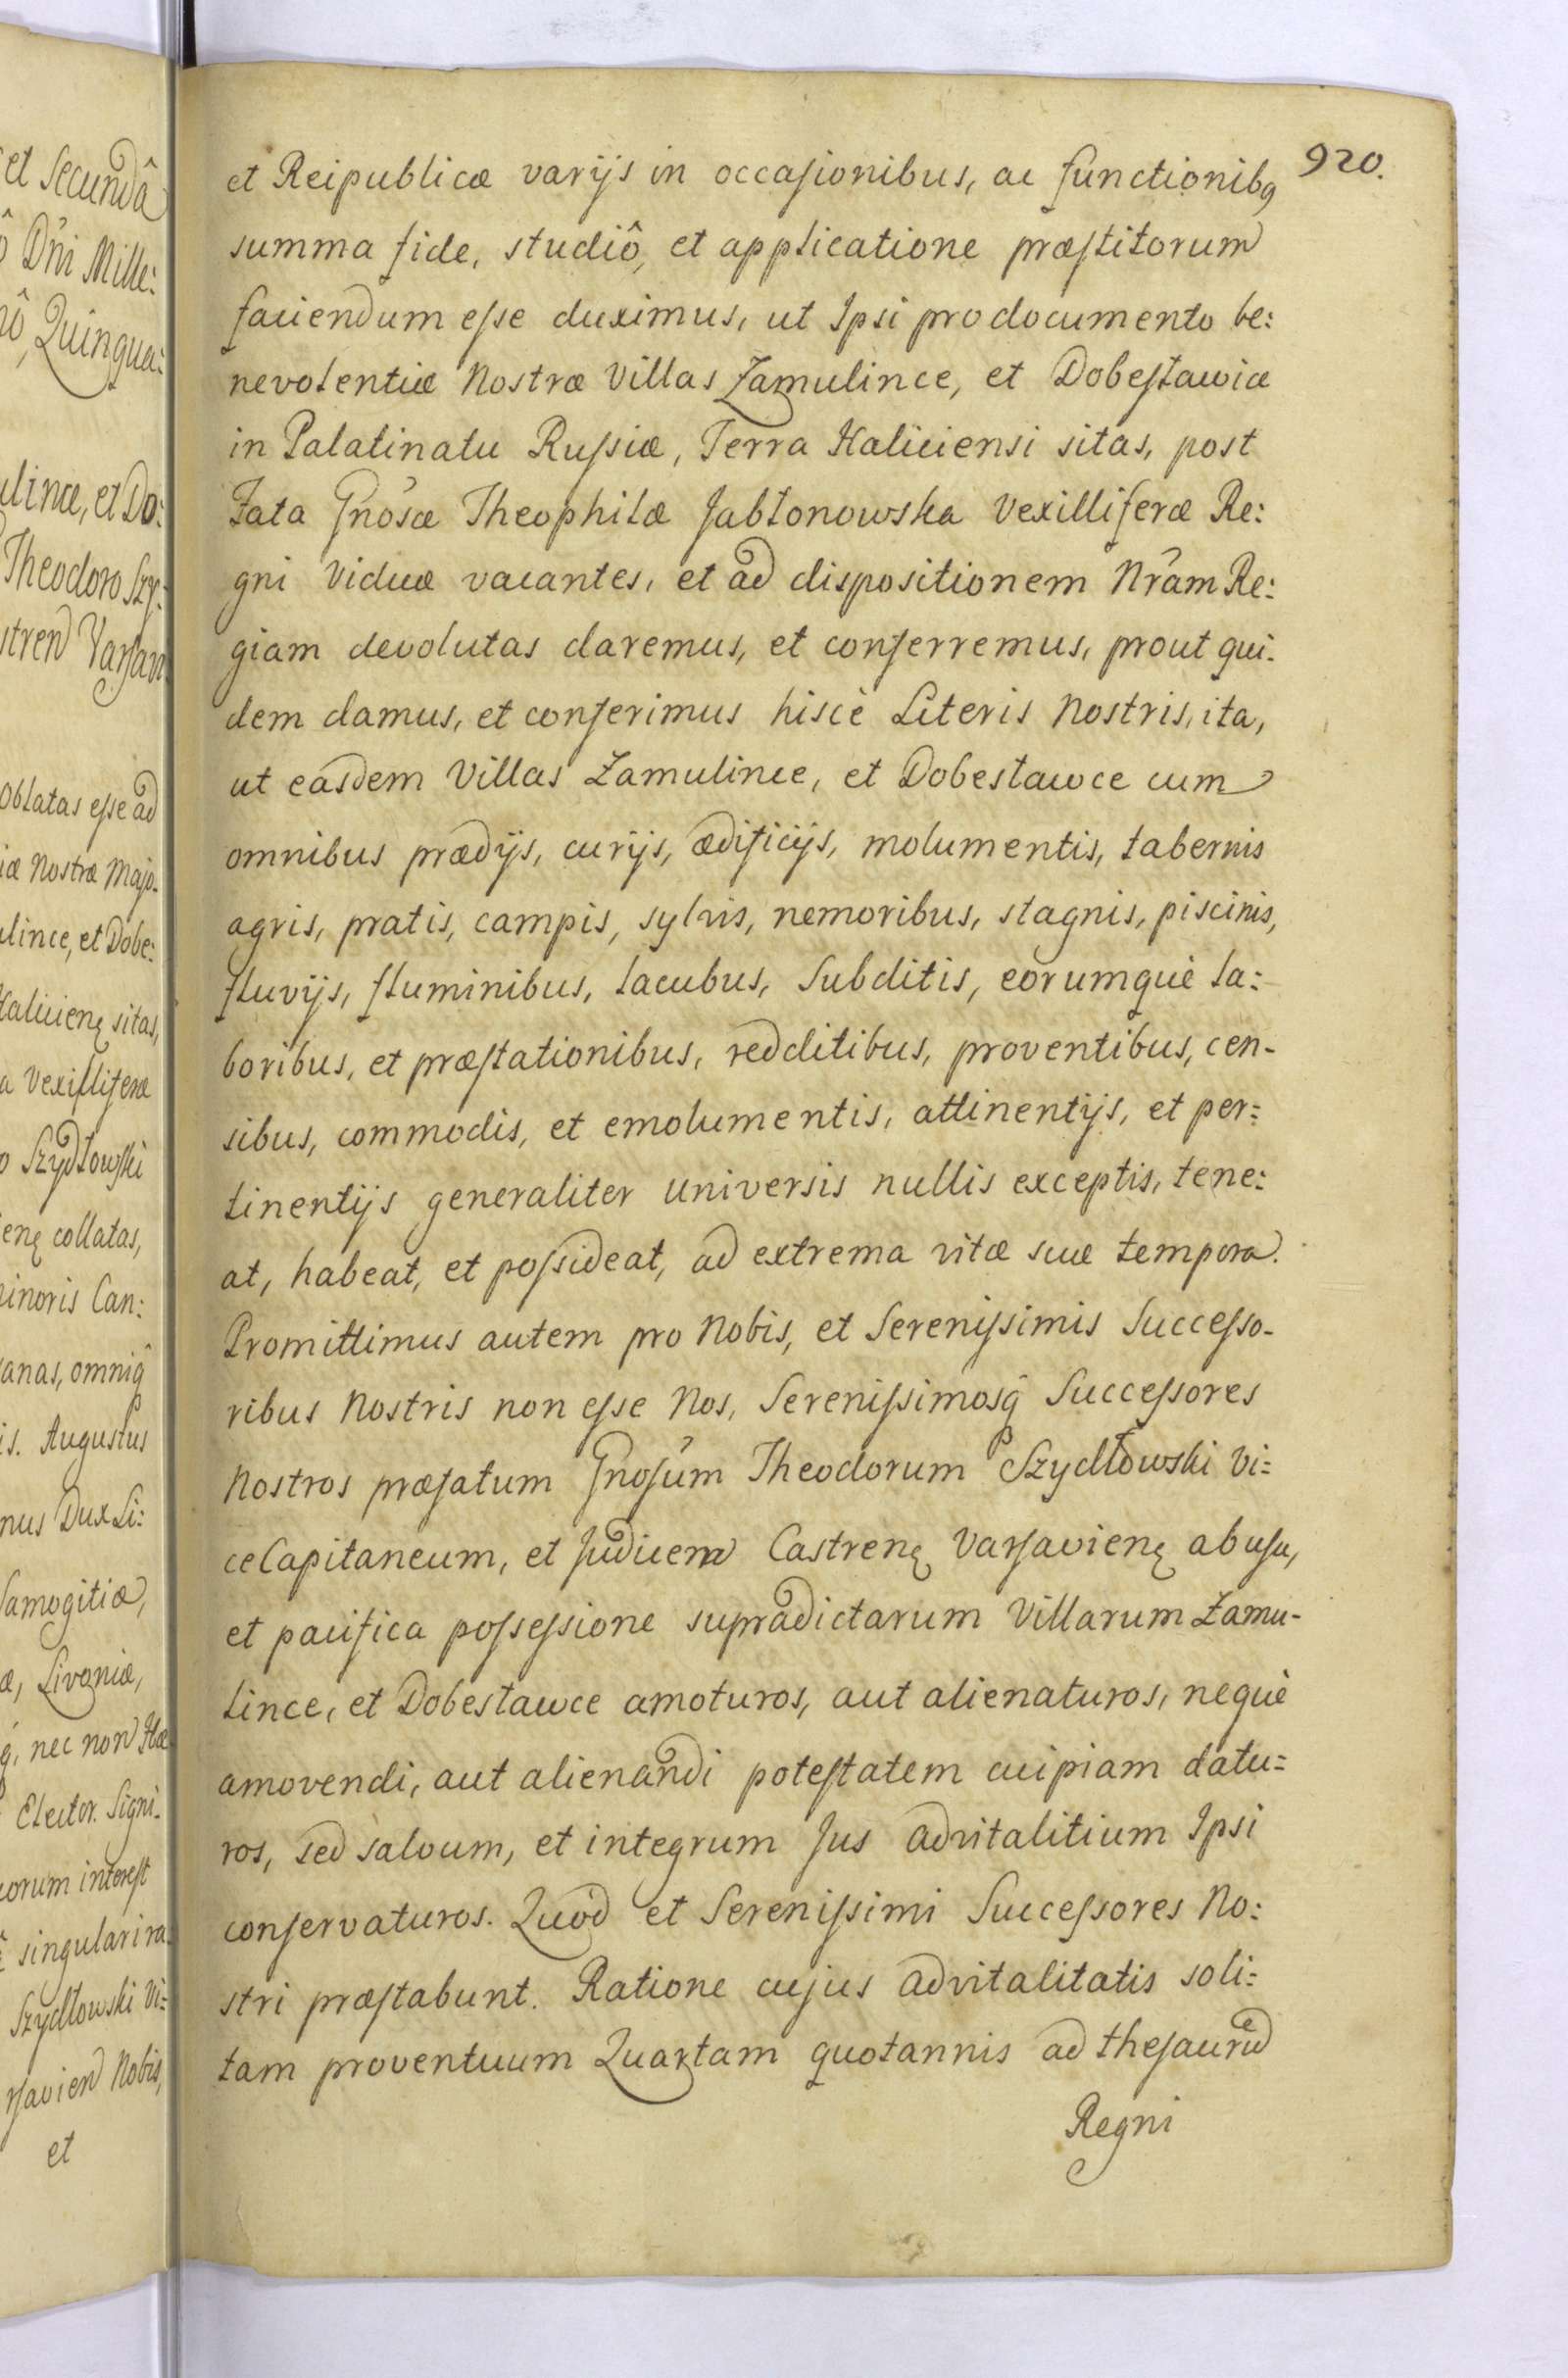 920.
et Reipublicæ varijs in occasionibus, ac functionibq
summa fide, studiô, et applicatione præstitorum
faciendum esse duximus, ut Ipsi pro documento be:
nevolentiæ Nostræ Villas Zamulince, et Dobesławice
in Palatinatu Russiæ, Terra Haliciensi sitas, post
Fata Gnosæ Theophilæ Jabłonowska Vexilliferæ Re:
gni Viduæ vacantes, et ad dispositionem Nram Re:
giam devolutas daremus, et conferremus, prout qui-
dem damus, et conferimus hiscè Literis Nostris, ita,
ut easdem Villas Zamulince, et Dobesławce cum
omnibus prædijs, curijs, ædificijs, molumentis, tabernis
agris, pratis, campis, sylvis, nemoribus, stagnis, piscinis,
fluvijs, fluminibus, lacubus, Subditis, eorumquè la:
boribus, et præstationibus, redditibus, proventibus, cen-
sibus, commodis, et emolumentis, attinentijs, et per:
tinentijs generaliter universis nullis exceptis, tene:
at, habeat, et possideat, ad extrema vitæ suæ tempora.
Promittimus autem pro Nobis, et Serenissimis Successo-
ribus Nostris non esse Nos, Serenissimosq Successores
Nostros præfatum Gnosum Theodorum Szydłowski Vi:
ceCapitaneum, et Judicem Castrenę Varsavienę ab usu,
et pacifica possessione supradictarum Villarum Zamu-
lince, et Dobesławce amoturos, aut alienaturos, nequè
amovendi, aut alienandi potestatem cuipiam datu:
ros, sed salvum, et integrum Jus advitalitium Ipsi
conservaturos. Quòd et Serenissimi Successores No:
stri præstabunt. Ratione cujus advitalitatis soli:
tam proventuum Quartam quotannis ad thesaurū
Regni
et Secundâ
Dni Mille:
Quinqua:
ulince, et Do:
Theodoro Szy:
oblatas esse ad
Nostræ Majo-
ulince, et Dobe:
Halicienę sitas,
a Vexilliferæ
o Szydłowski
collatas,
inoris Can:
anas, omniq
is. Augustus
nus Dux Li:
Samogitiæ,
æ, Livoniæ,
q, nec non Hæ
Elector. Signi-
orum interest
singulari ra
Szydłowski Vi:
Nobis,
et